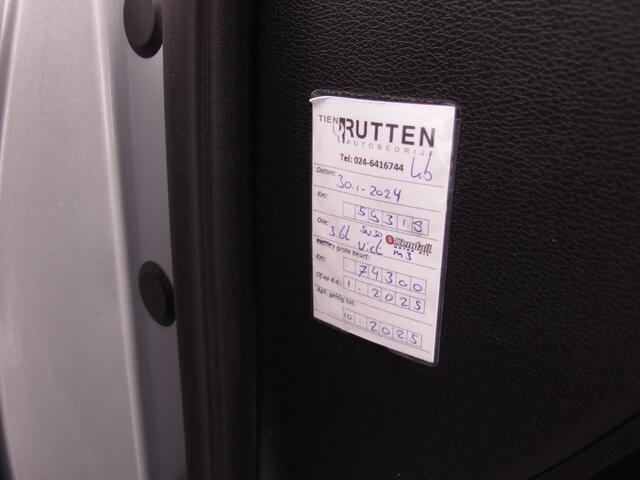 TIEN RUTTEN
AUTOBEDRIJF
Tel: 024-6416744
Datum: 30-1-2024
Km: 55318
Olie: 3.6l 5W30
Kendall
MOTOR OIL
grote beurt:
Km: 74300
Of op d.d.: 1-2025
Apk. geldig tot:
10-2025